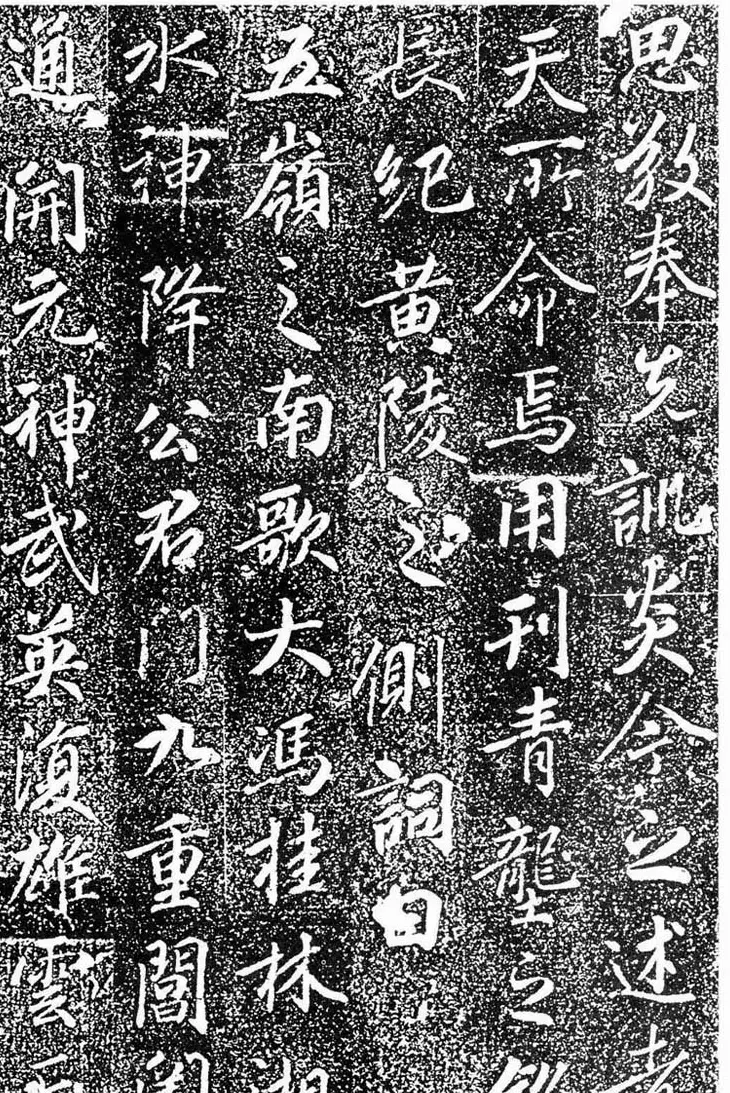 思敬奉先訓矣今之述者
天所命焉用刊青壟之
長紀黃陵之側詞曰
五嶺之南歌大馮桂林湘
水神降公君門九重閶闔
通開元神武英復雄雲